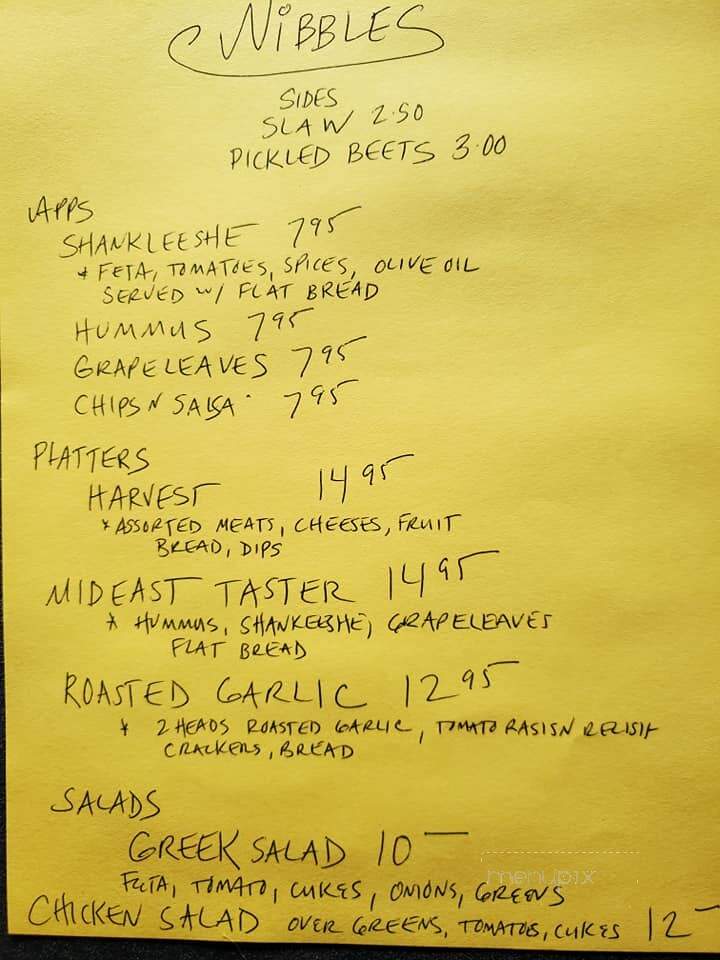 NIBBLES
SIDES
SLAW 2.50
PICKLED BEETS 3.00
APPS
SHANKLEESHE 7 95
* FETA, TOMATOES, SPICES, OLIVE OIL
SERVED w/ FLAT BREAD
HUMMUS 7 95
GRAPELEAVES 7 95
CHIPS N SALSA 7 95
PLATTERS
HARVEST 14 95
* ASSORTED MEATS, CHEESES, FRUIT
BREAD, DIPS
MIDEAST TASTER 14 95
* HUMMUS, SHANKEESHE, GRAPELEAVES
FLAT BREAD
ROASTED GARLIC 12 95
* 2 HEADS ROASTED GARLIC, TOMATO RASISN RELISH
CRACKERS, BREAD
SALADS
GREEK SALAD 10 —
FETA, TOMATO, CUKES, ONIONS, GREENS
CHICKEN SALAD OVER GREENS, TOMATOES, CUKES 12 —
menupix